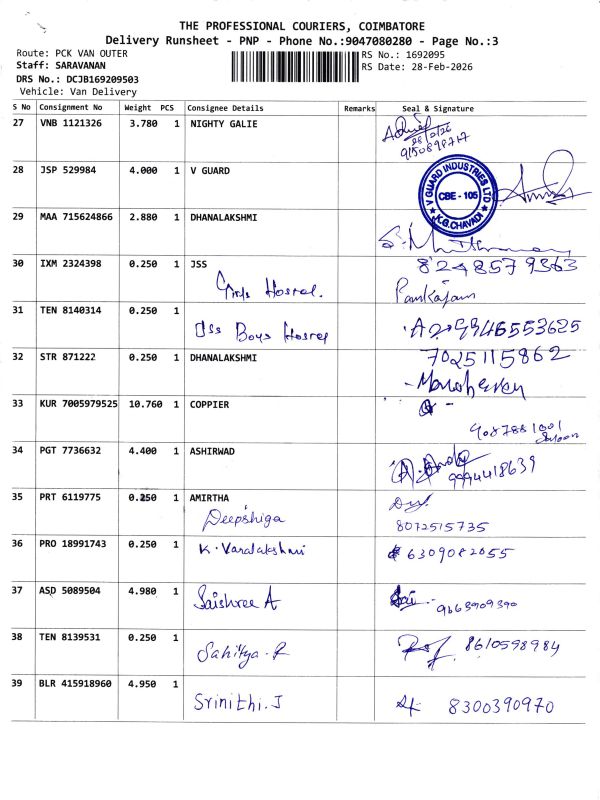 THE PROFESSIONAL COURIERS, COIMBATORE
Delivery Runsheet - PNP - Phone No.:9047080280 - Page No.:3
Route: PCK VAN OUTER
RS No.: 1692095
Staff: SARAVANAN
RS Date: 28-Feb-2026
DRS No.: DCJB169209503
Vehicle: Van Delivery
S No Consignment No Weight PCS Consignee Details Remarks Seal & Signature
27 VNB 1121326 3.780 1 NIGHTY GALIE
28/2/26
9150898717
28 JSP 529984 4.000 1 V GUARD
V GUARD INDUSTRIES LTD
CBE - 105
K.G.CHAVADI
29 MAA 715624866 2.880 1 DHANALAKSHMI
30 IXM 2324398 0.250 1 JSS 8248579363
Girls Hostel. Pankajam
31 TEN 8140314 0.250 1
Jss Boys Hostel 9946553625
32 STR 871222 0.250 1 DHANALAKSHMI 7025115862
33 KUR 7005979525 10.760 1 COPPIER
9087881001
34 PGT 7736632 4.400 1 ASHIRWAD
9994418639
35 PRT 6119775 0.250 1 AMIRTHA
Deepshiga
8072515735
36 PRO 18991743 0.250 1
K. Varalakshmi 6309082055
37 ASD 5089504 4.980 1
Saishree A Sai 9663909390
38 TEN 8139531 0.250 1
Sahitya. R 8610598984
39 BLR 415918960 4.950 1
Srinithi. J 8300390970